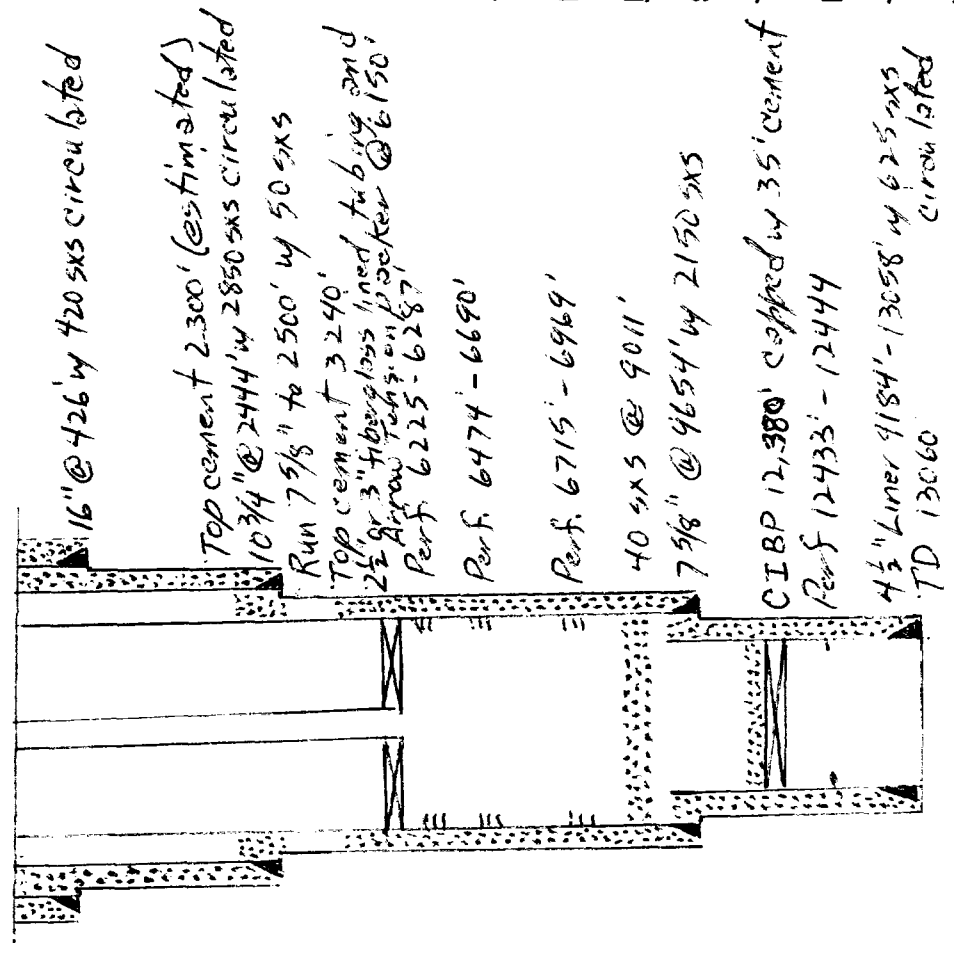 16" @ 426' w/ 420 sxs circulated
Top cement 2300' (estimated)
10 3/4" @ 2444' w/ 2850 sxs circulated
Run 7 5/8" to 2500' w/ 50 sxs
Top cement 3240'
2 1/2" or 3" fiberglass lined tubing and
Arrow Tension packer @ 6150'
Perf. 6225 - 6287'
Perf. 6474' - 6690'
Perf. 6715' - 6969'
40 sxs @ 9011'
7 5/8" @ 9654' w/ 2150 sxs
CIBP 12,380' capped w/ 35' cement
Perf 12433' - 12444
4 1/2" Liner 9184' - 13058' w/ 625 sxs
circulated
TD 13060